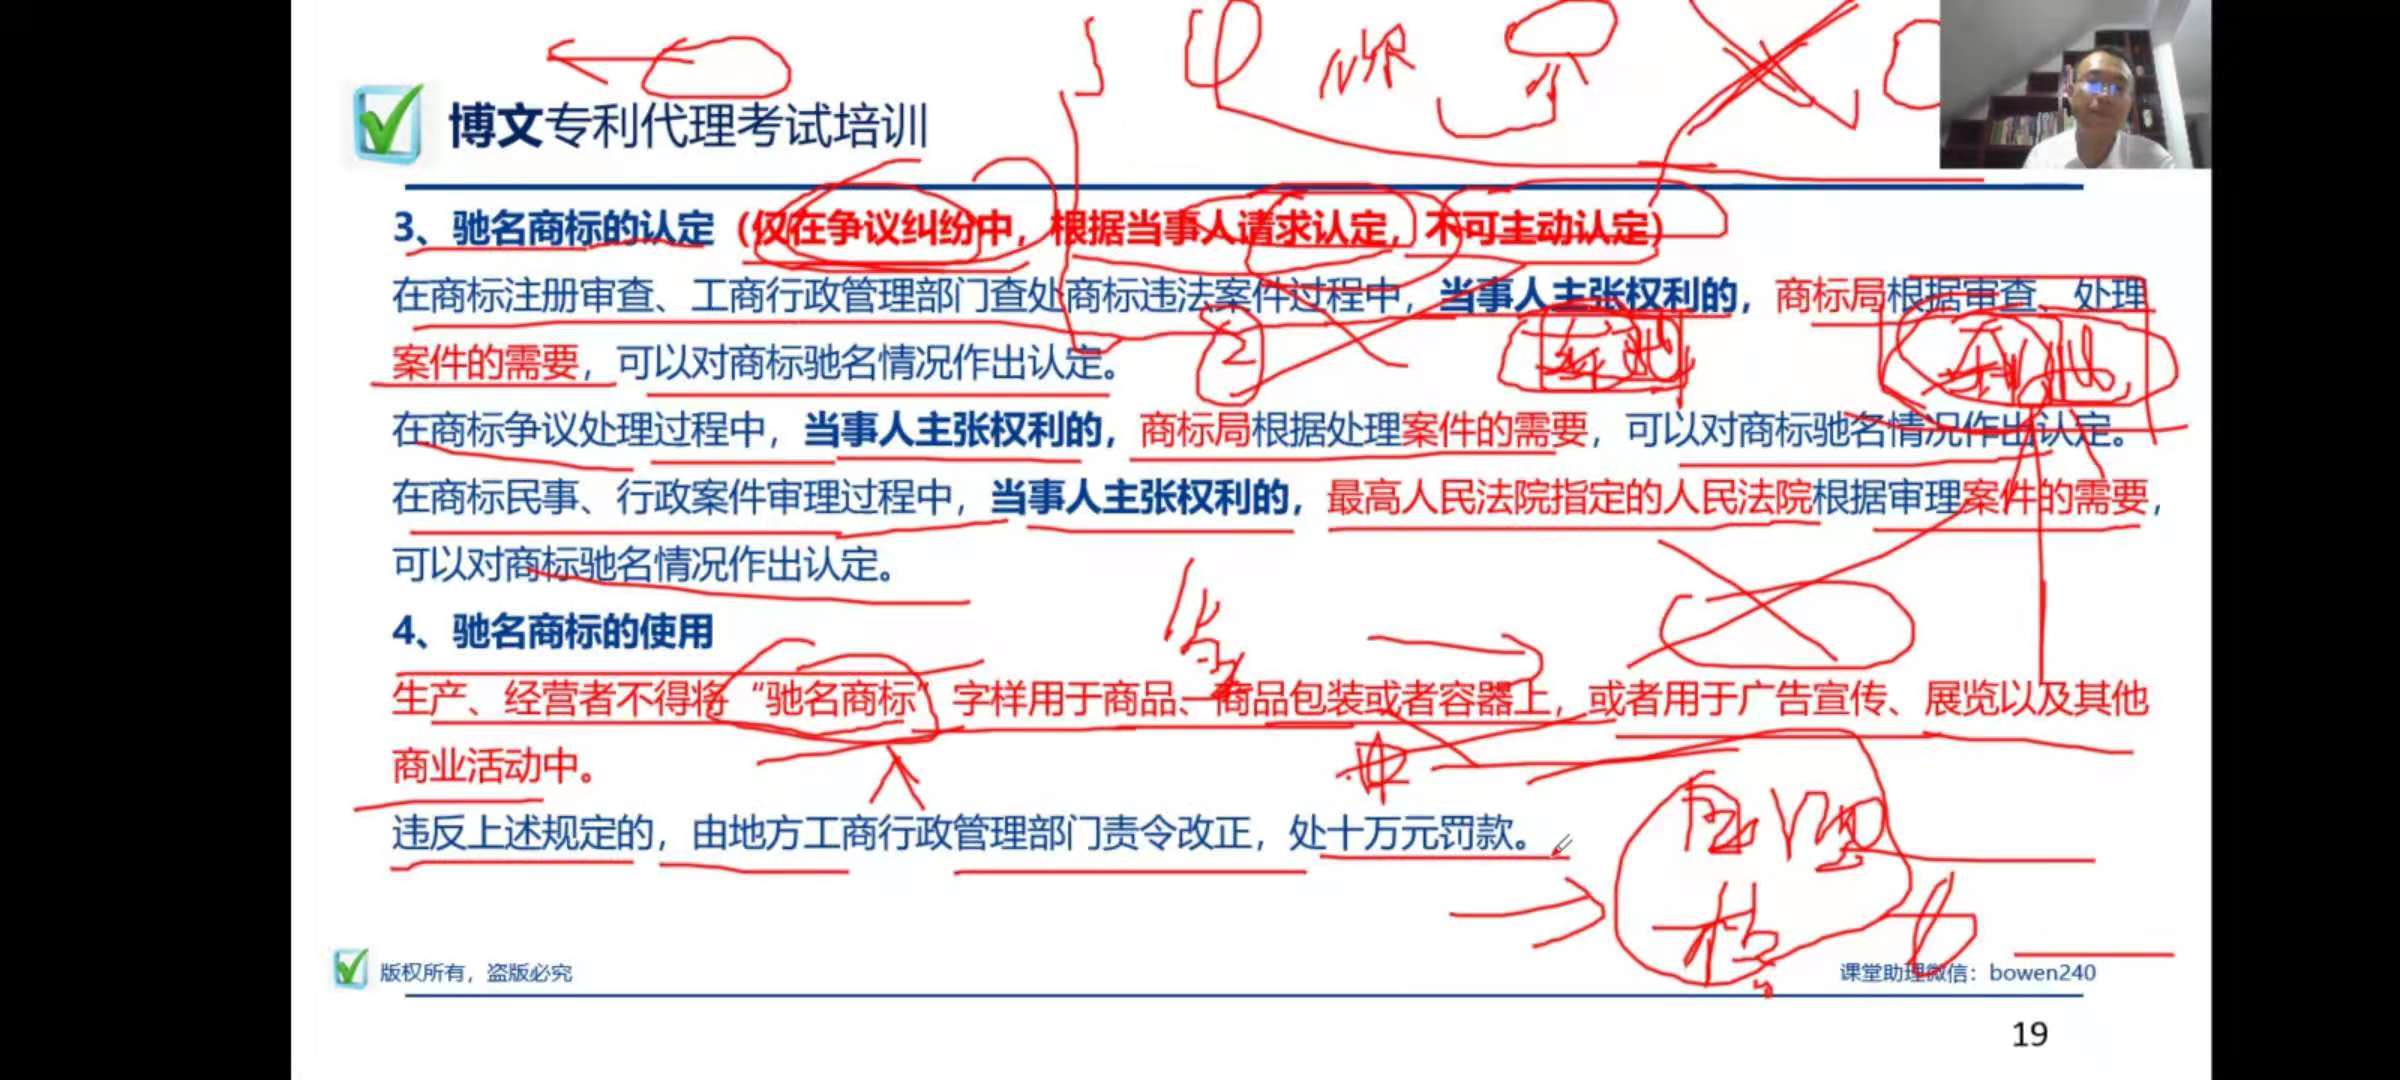 博文专利代理考试培训
3、驰名商标的认定（仅在争议纠纷中，根据当事人请求认定，不可主动认定）
在商标注册审查、工商行政管理部门查处商标违法案件过程中，当事人主张权利的，商标局根据审查、处理
案件的需要，可以对商标驰名情况作出认定。
在商标争议处理过程中，当事人主张权利的，商标局根据处理案件的需要，可以对商标驰名情况作出认定。
在商标民事、行政案件审理过程中，当事人主张权利的，最高人民法院指定的人民法院根据审理案件的需要，
可以对商标驰名情况作出认定。
4、驰名商标的使用
生产、经营者不得将“驰名商标”字样用于商品、商品包装或者容器上，或者用于广告宣传、展览以及其他
商业活动中。
违反上述规定的，由地方工商行政管理部门责令改正，处十万元罚款。
版权所有，盗版必究
课堂助理微信：bowen240
19